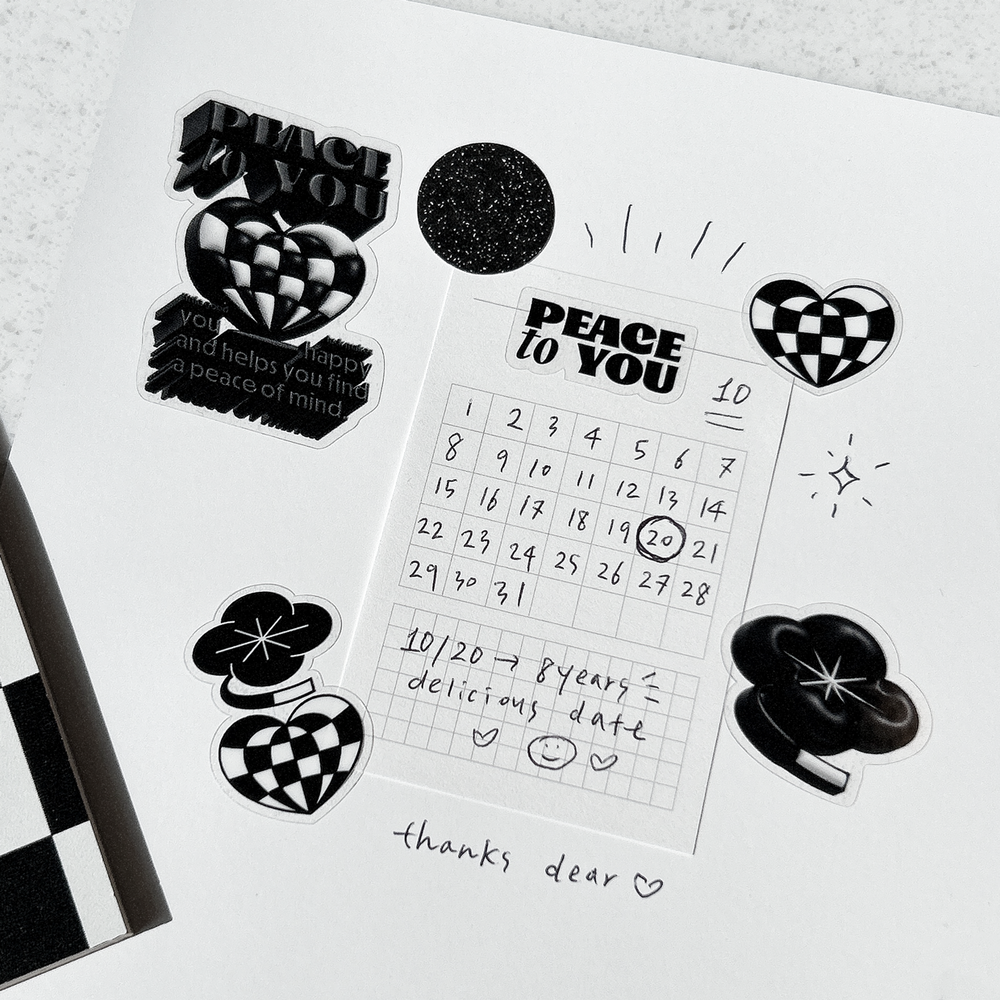 PEACE
to YOU
you happy
and helps you find
a peace of mind.
PEACE
to YOU
10
1 2 3 4 5 6 7
8 9 10 11 12 13 14
15 16 17 18 19 20 21
22 23 24 25 26 27 28
29 30 31
10/20 → 8years
delicious date
♡ ♡
thanks dear ♡